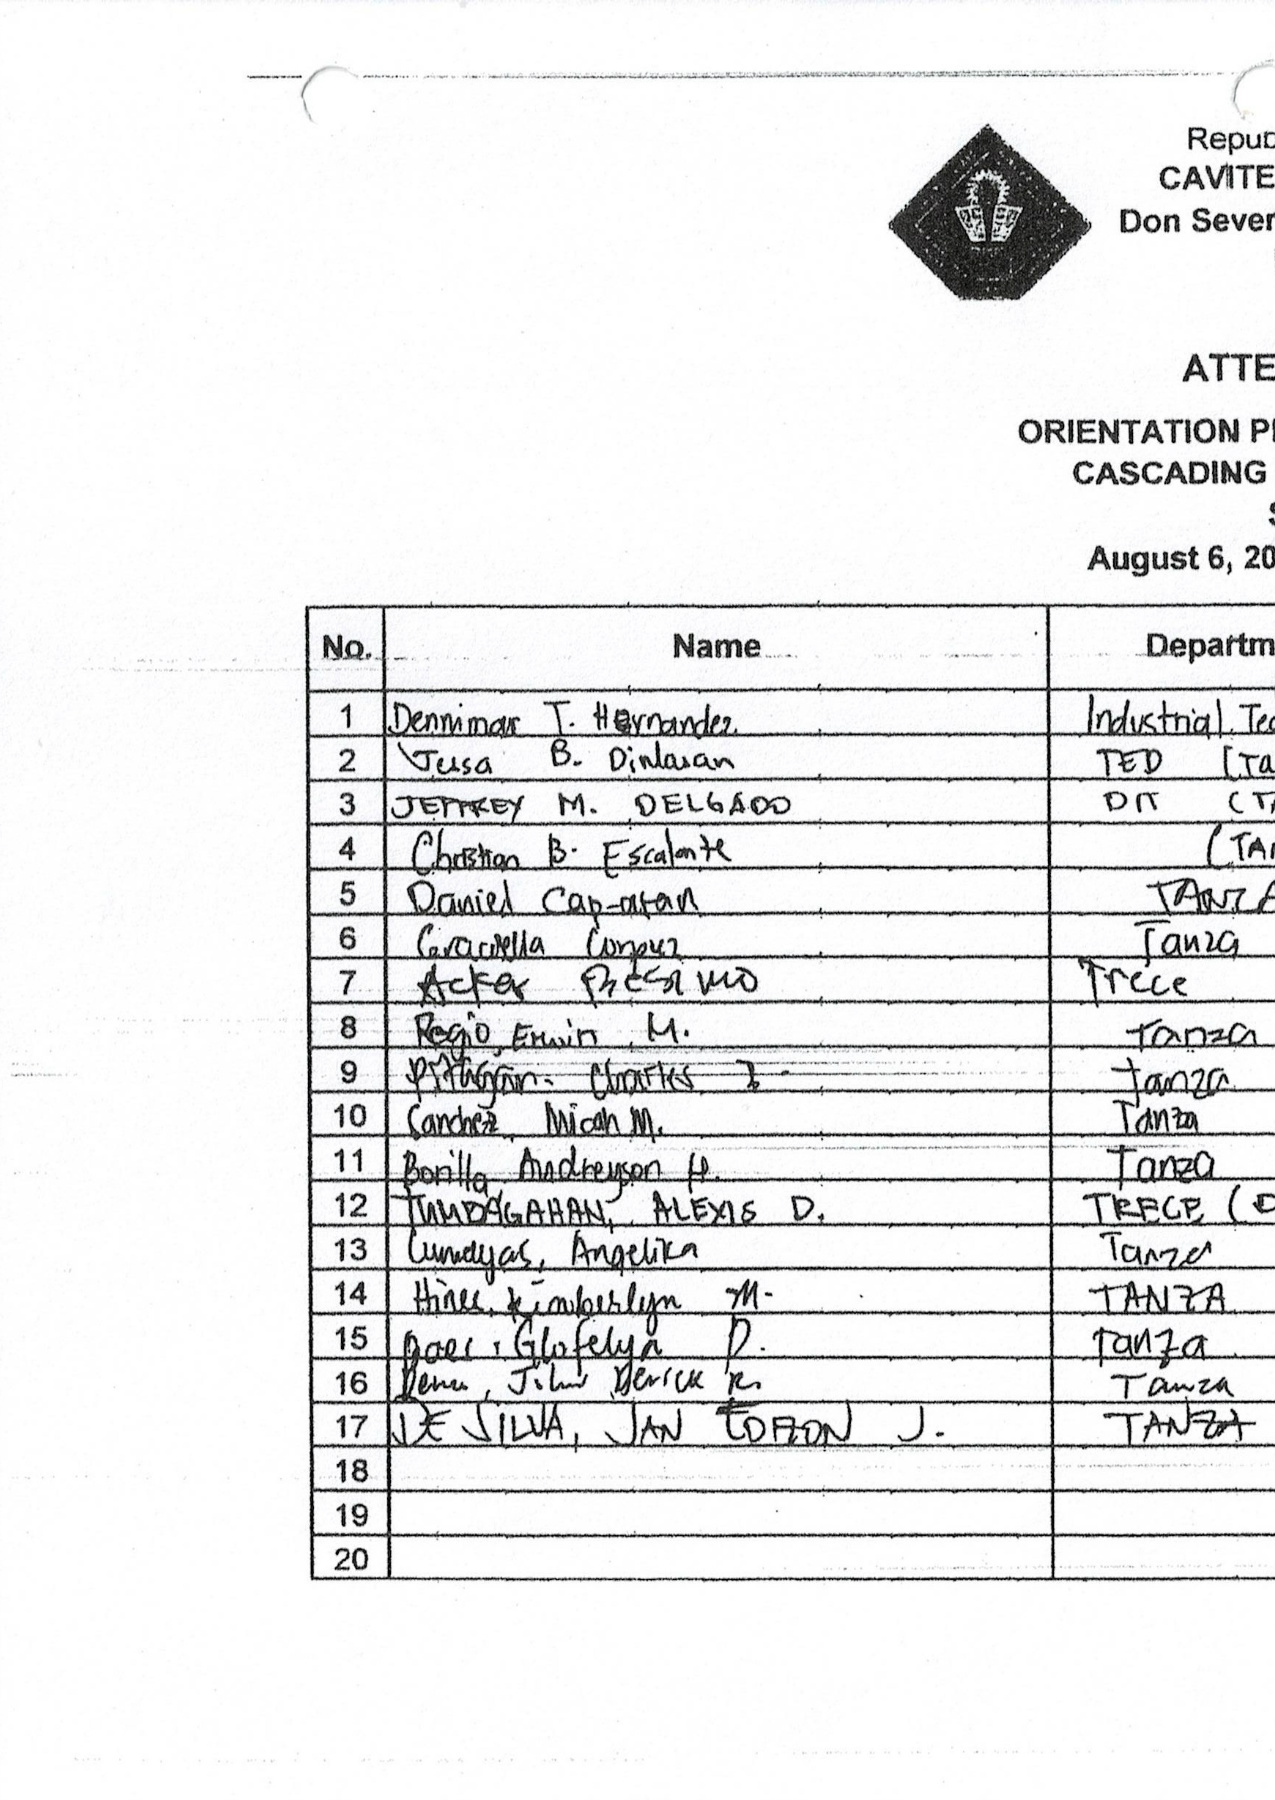 Repub
CAVITE
Don Sever
ATTE
ORIENTATION P
CASCADING
S
August 6, 20
No. Name Departm
1 Dennimar T. Hernandez Industrial Tec
2 B. Dinlasan TED (Ta
3 JEFFREY M. DELGADO DIT (TA
4 Christian B. Escalante (TAN
5 Daniel Cap-atan TANZA
6 Graciella Corpuz Tanza
7 Trece
8 Regio, Erwin M. Tanza
9 Charles Tanza
10 Sanchez, Micah M. Tanza
11 Borilla, Andreyson H. Tanza
12 TUMDAGAHAN, ALEXIS D. TRECE (D
13 Angelika Tanza
14 Kimberlyn M. TANZA
15 Glofelyn D. Tanza
16 Derick R. Tanza
17 DE SILVA, JAN EDRON J. TANZA
18
19
20